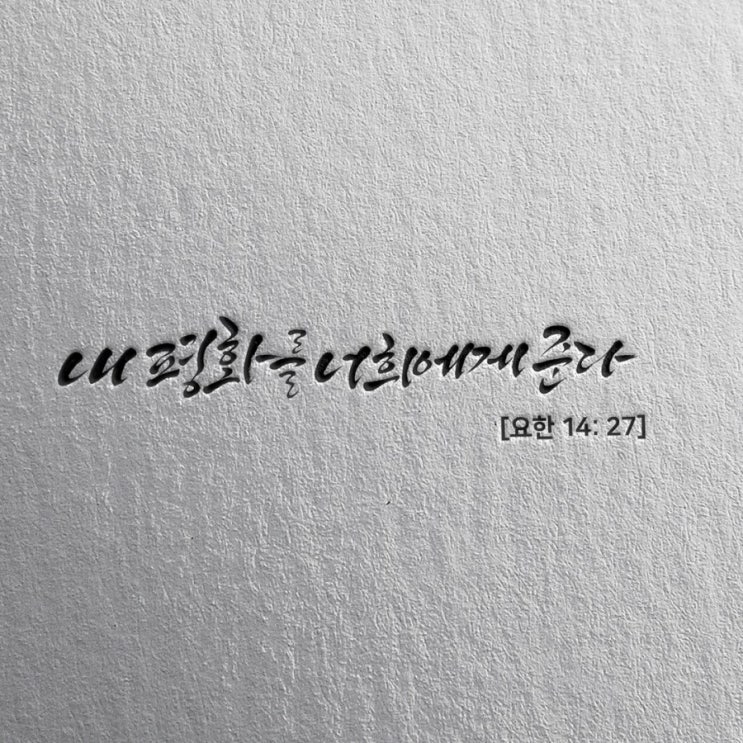 내 평화를 너희에게 준다
[요한 14: 27]